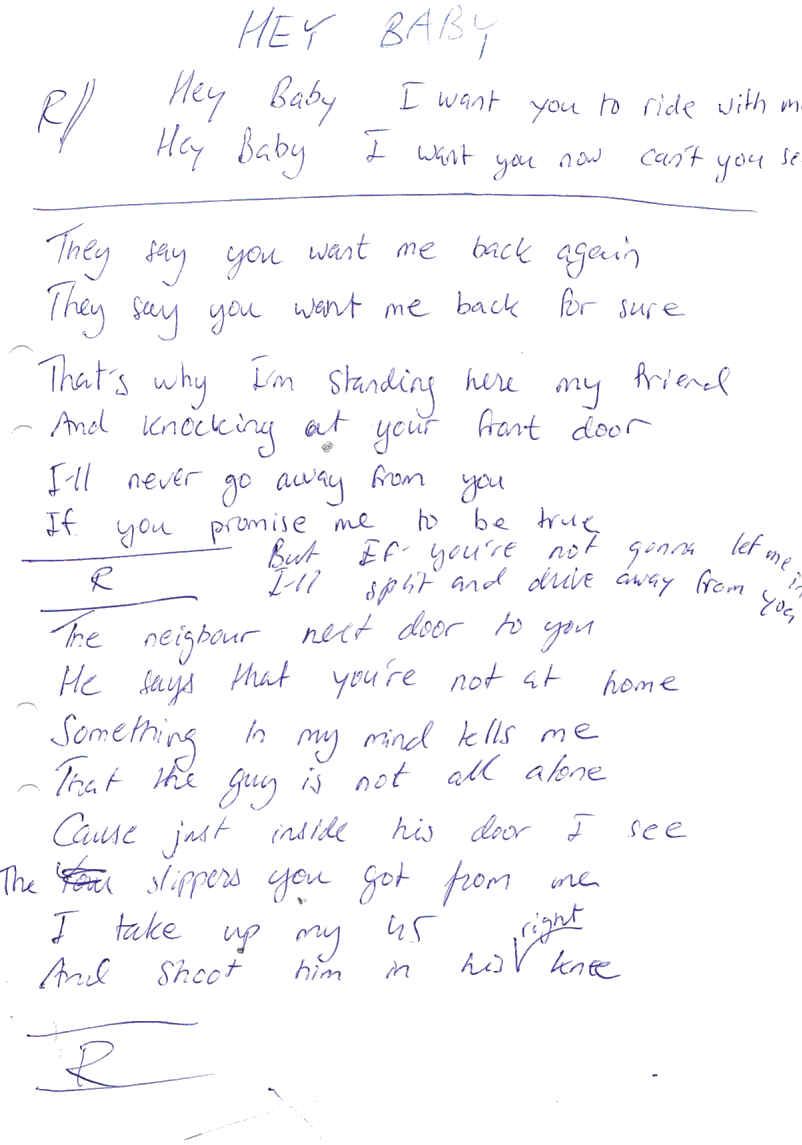 HEY BABY
R// Hey Baby I want you to ride with m
Hey Baby I want you now can't you se
They say you want me back again
They say you want me back for sure
That's why I'm standing here my friend
And knocking at your front door
I'll never go away from you
If you promise me to be true
But If you're not gonna let me in
R I'll split and drive away from you
The neigbour next door to you
He says that you're not at home
Something in my mind tells me
That the guy is not all alone
Cause just inside his door I see
The slippers you got from me
I take up my 45
And shoot him in his right knee
R